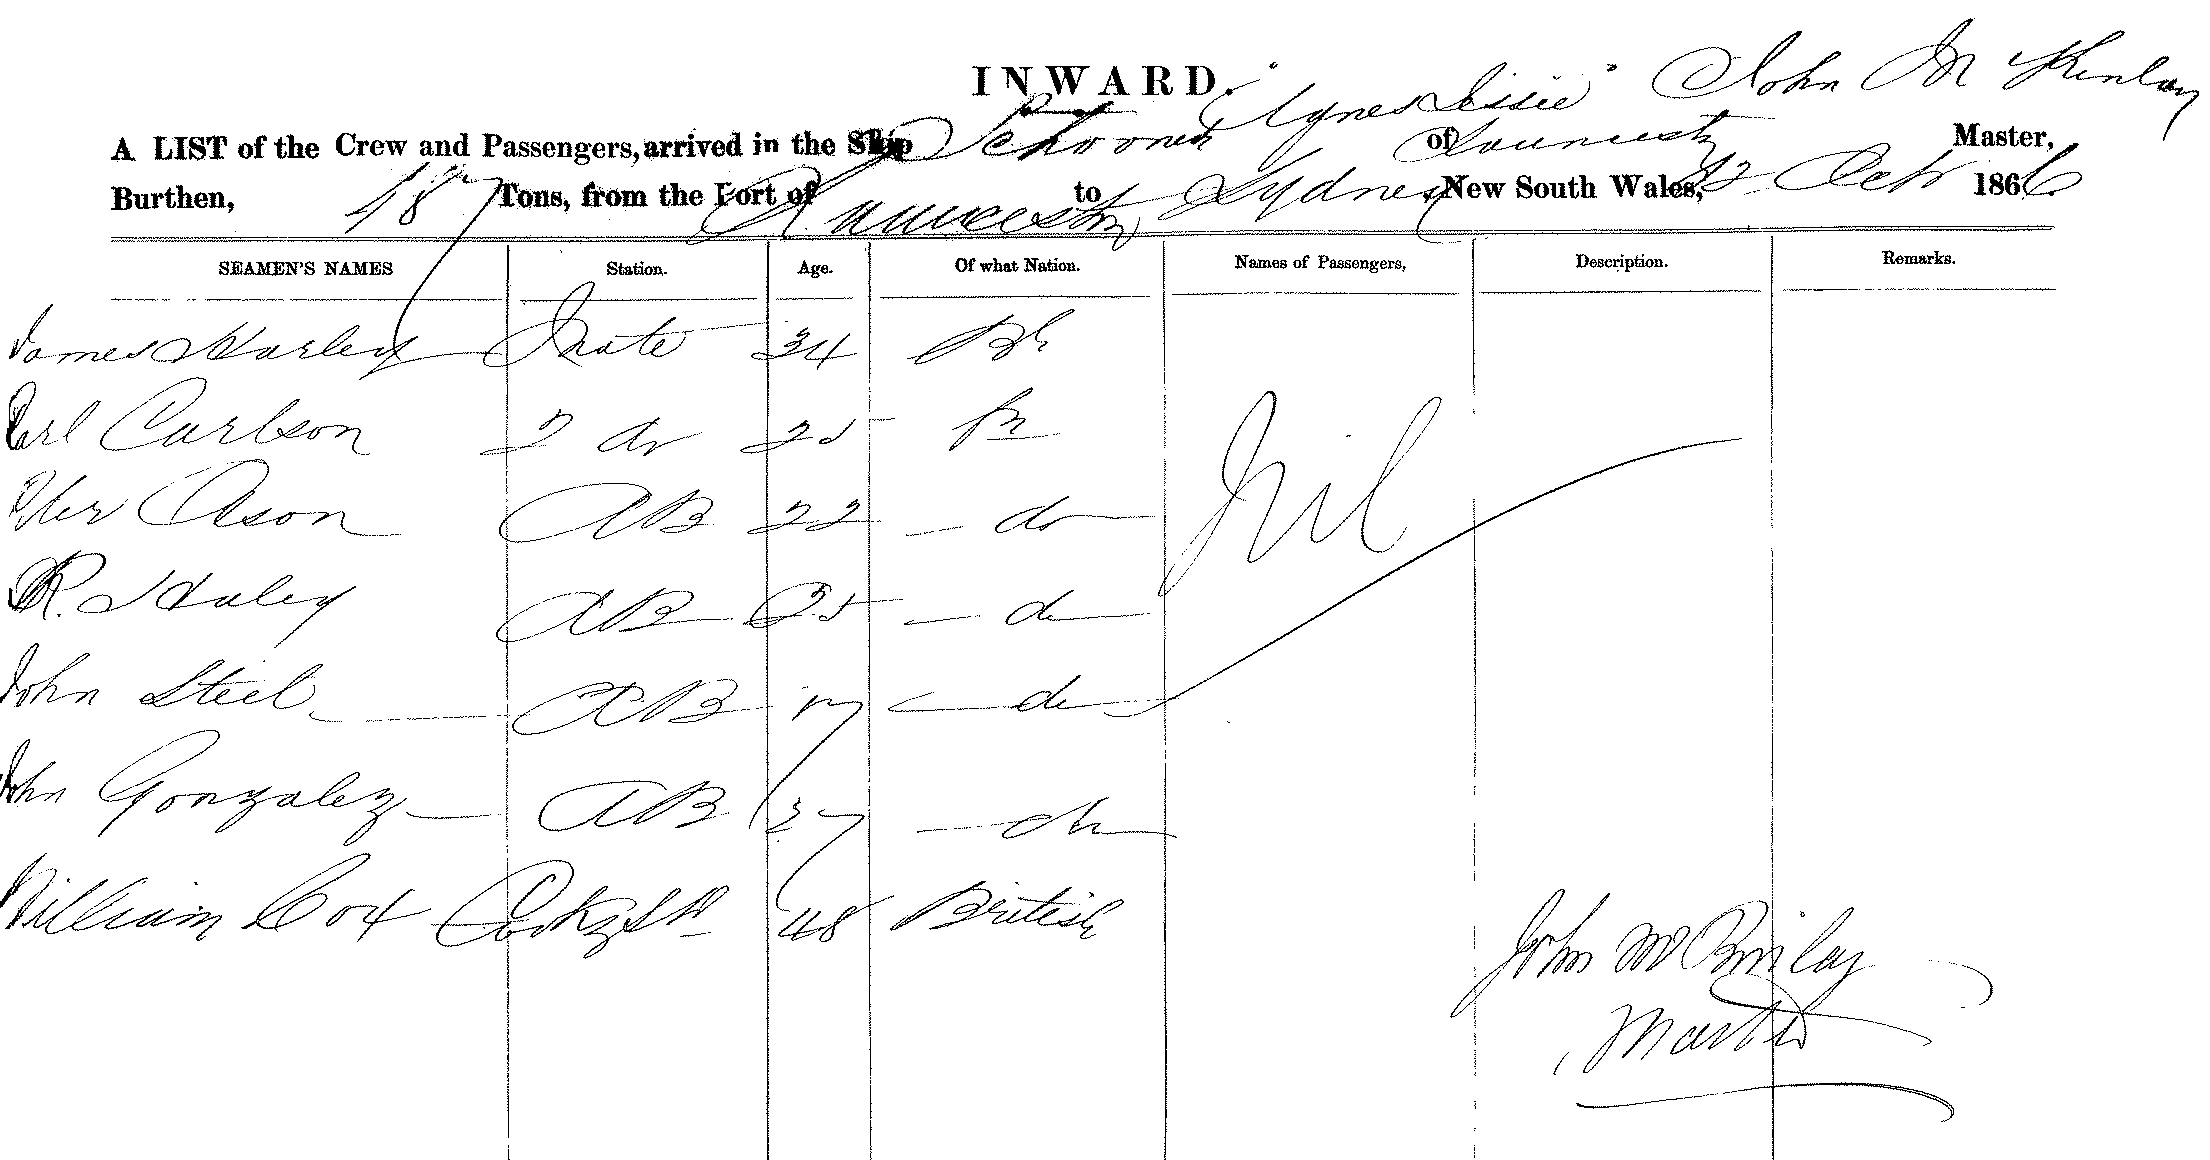 INWARD.
A LIST of the Crew and Passengers, arrived in the Ship Schooner "Agnes Jessie" of Launceston John McKinlay Master,
Burthen, Tons, from the Port of Launceston to Sydney New South Wales, Octr 1866
SEAMEN'S NAMES Station. Age. Of what Nation. Names of Passengers, Description. Remarks.
James Mate 34 Bh
Carl Carlson 2 do 25 Br Nil
AB 22 - do
R. Haley AB 25 - do
John Steel AB 17 - do
John Gonzalez AB 27 - do
William Cox Cook & Std 48 British
John McKinlay
Master